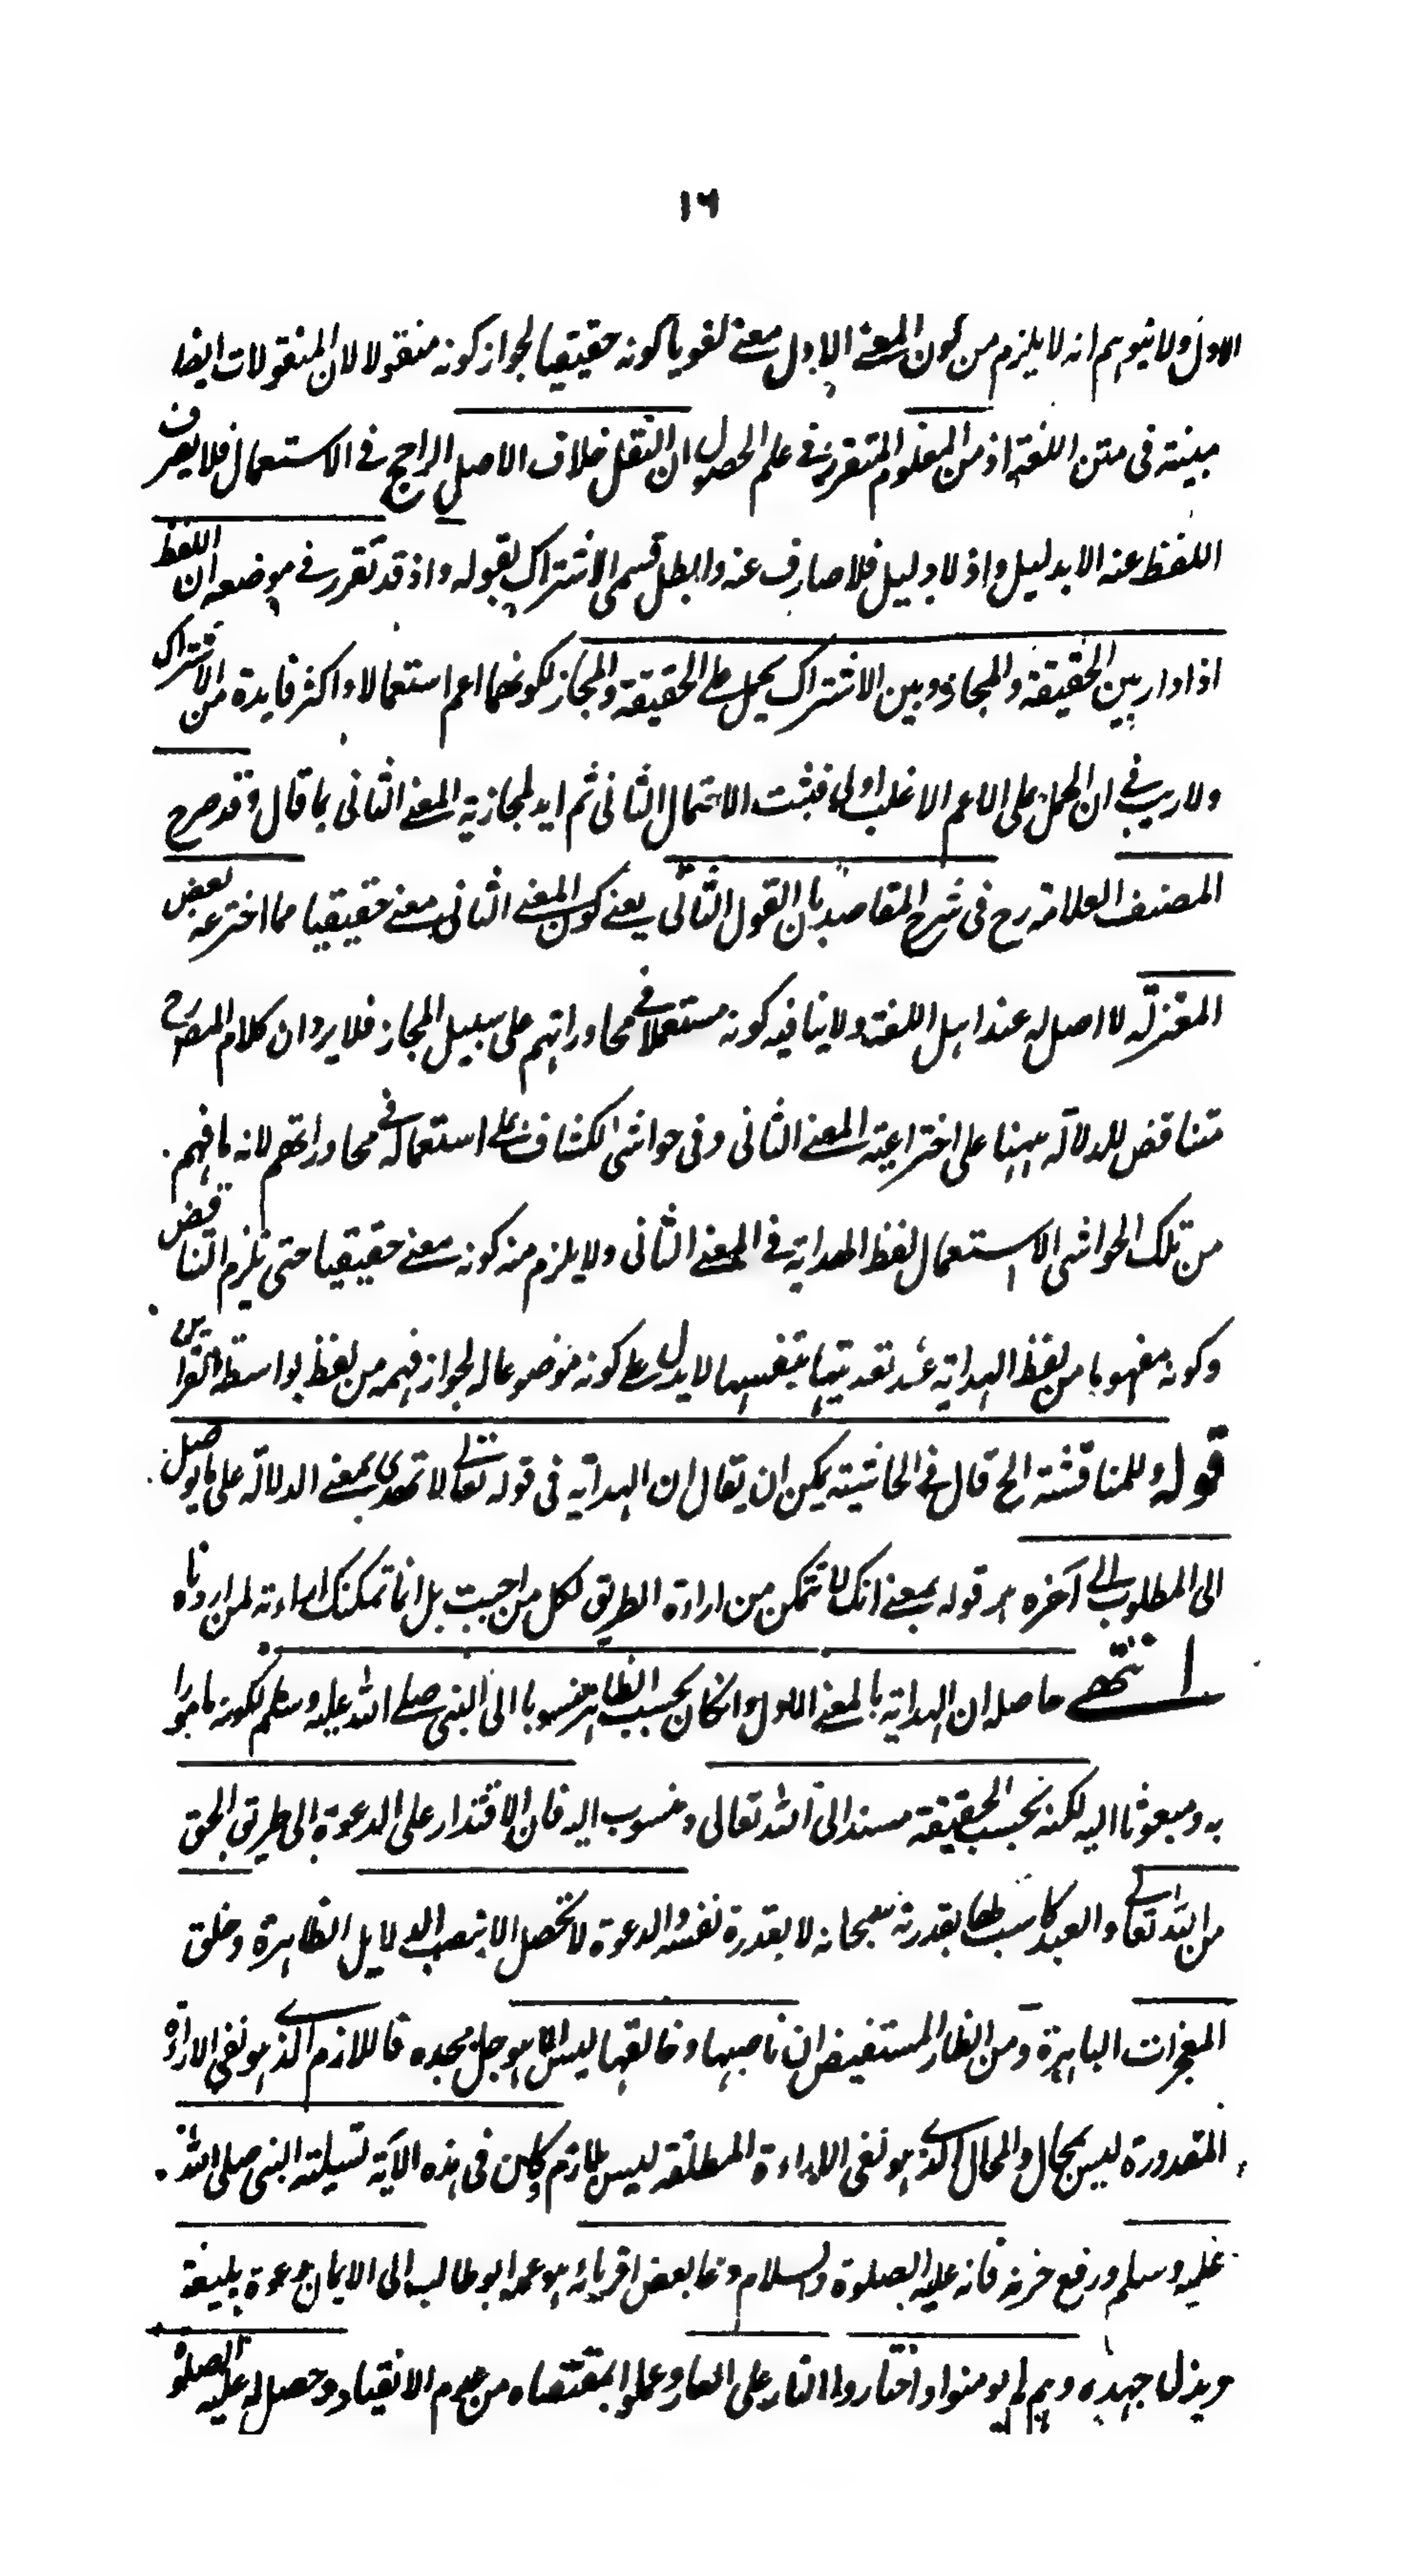 ۱۶
الاول ولا يتوهم انه لا يلزم من كون المعنے الاول معنے لغويا كونه حقيقيا لجواز كونه منقولا لان المنقولات ايضا
مبينة فى متن اللغة اذ من المعلوم المتقرر فے علم الحصول ان النقل خلاف الاصل الراجح فے الاستعمال فلا يصرف
اللفظ عنه الا بدليل واذ لا دليل فلا صارف عنه وابطل قسمى الاشتراك بقوله واذ قد تقرر فے موضعه ان اللفظ
اذا دار بين الحقيقة والمجاز وبين الاشتراك يحمل علے الحقيقة والمجاز لكونهما اعم استعمالا واكثر فايدة من الاشتراك
ولا ريب فے ان الحمل على الاعم الاغلب اولى فثبت الاحتمال الثانى ثم ايد لمجازية المعنے الثانى بما قال وقد صرح
المصنف العلامة رح فى شرح المقاصد بان القول الثانى يعنے كون المعنے الثانى معنے حقيقيا مما اخترعه بعض
المعتزلة لا اصل له عند اهل اللغة ولا ينافيه كونه مستعملا فے محاوراتهم على سبيل المجاز فلا يرد ان كلام المصرح
متناقض للدلالة ههنا على اختراعية المعنے الثانى وفى حواشى الكشاف علے استعماله فے محاوراتهم لانه ما فهم
من تلك الحواشى الا استعمال لفظ الهداية فے المعنے الثانى ولا يلزم منه كونه معنے حقيقيا حتى يلزم التناقض
وكونه مفهوما من لفظ الهداية عند تعديتها بنفسها لا يدل علے كونه موضوعا له لجواز فهمه من لفظ بواسطة القراين
قوله وللمناقشة الخ قال فے الحاشية يمكن ان يقال ان الهداية فى قوله تعالے لا تهدى بمعنے الدلالة على ما يوصل
الى المطلوب الے آخره قوله بمعنے انك لا تتمكن من اراءة الطريق لكل من احببت بل انما تمكنك اراءته لمن اردناه
انتهے حاصله ان الهداية بالمعنے الاول وانكان بحسب الظاهر منسوبا الى النبى صلے الله عليه وسلم لكونه مامورا
به ومبعوثا اليه لكنه بحسب الحقيقة مسند الى الله تعالى ومنسوب اليه فان الاقتدار على الدعوة الى طريق الحق
من الله تعالے والعبد كاسب لها بقدرته سبحانه لا بقدرة نفسه والدعوة لا تحصل الا بنصب الدلايل الظاهرة وخلق
المعجزات الباهرة ومن الظاهر المستفيض ان ناصبها وخالقها ليس الا هو جل مجده فاللازم الذے هو نفى الاراءة
المقدورة ليس بمحال والمحال الذے هو نفى الاراءة المطلقة ليس بلازم وكان فى هذه الآية تسلية النبى صلى الله
عليه وسلم ورفع حزنه فانه عليه الصلوة والسلام دعا بعض اقربائه هو عمه ابو طالب الى الايمان دعوة بليغة
وبذل جهده وهم لم يومنوا واختاروا النار على العار وعملوا بمقتضاه من عدم الانقياد وحصل له عليه الصلوة